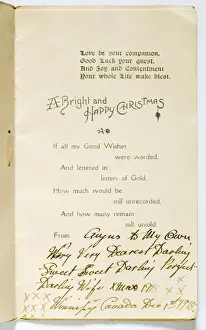 Love be your companion,
Good Luck your guest,
And Joy and Contentment
Your whole Life make blest.
A Bright and
HAPPY CHRISTMAS
If all my Good Wishes
were worded,
And lettered in
letters of Gold,
How much would be
still unrecorded,
And how many remain
still untold.
From Angus to My Own
Very Very Dearest Darling
Sweet Sweet Darling Perfect
Darling Wife
Winnipeg Canada Dec 1st